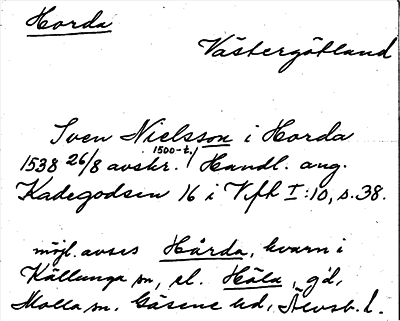 Horda
Västergötland
Sven Nielsson i Horda
1538 26/8 avskr. (1500-t.) Handl. ang.
Kadegodsen 16 i Vfh I:10, s. 38.
möjl. avses Hårda, kvarn i
Källunga sn, el. Häla, gd,
Molla sn. Gäsene hd, Älvsb. l.